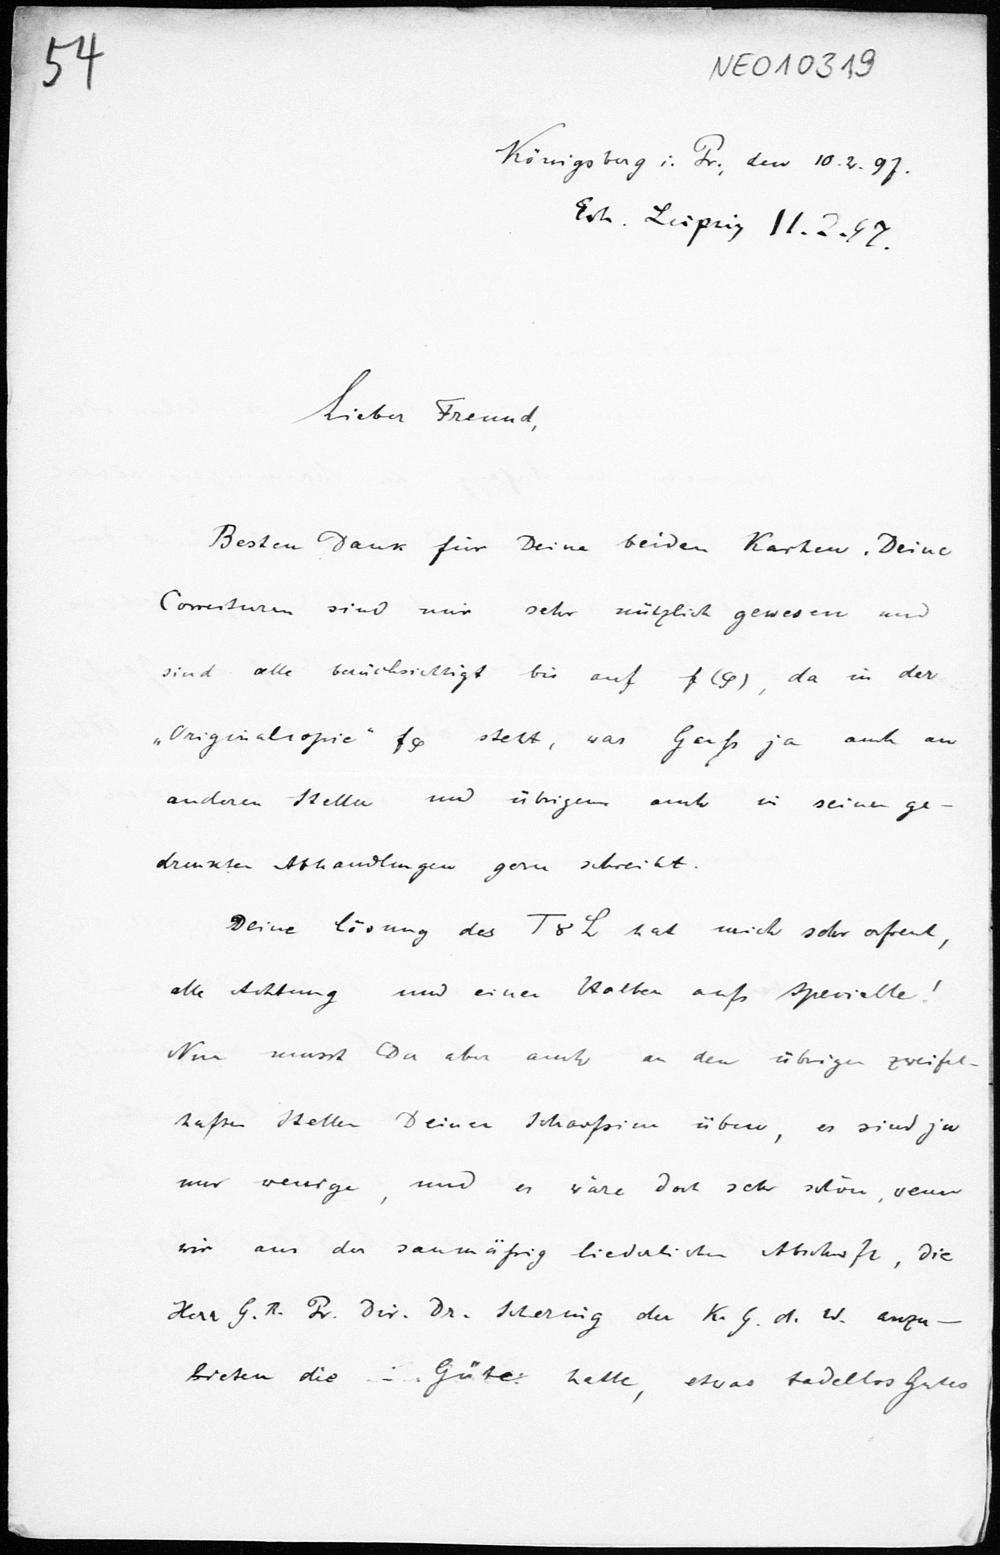 54
NEO10319
Königsberg i. Pr., den 10.2.97.
Erh. Leipzig 11.2.97.
Lieber Freund,
Besten Dank für Deine beiden Karten. Deine
Correcturen sind mir sehr nützlich gewesen und
sind alle berücksichtigt bis auf f(φ), da in der
„Originalcopie“ fφ steht, was Gauß ja auch an
anderen Stellen und übrigens auch in seinen ge-
druckten Abhandlungen gern schreibt.
Deine Lösung des T&L hat mich sehr erfreut,
alle Achtung und einen Halben aufs Spezielle!
Nun musst Du aber auch an den übrigen zweifel-
haften Stellen Deinen Scharfsinn üben, es sind ja
nur wenige, und es wäre doch sehr schön, wenn
wir aus der saumäßig liederlichen Abschrift, die
Herr G. R. Pr. Dir. Dr. Schering der K. G. d. W. anzu-
bieten die Güte hatte, etwas tadellos Gutes